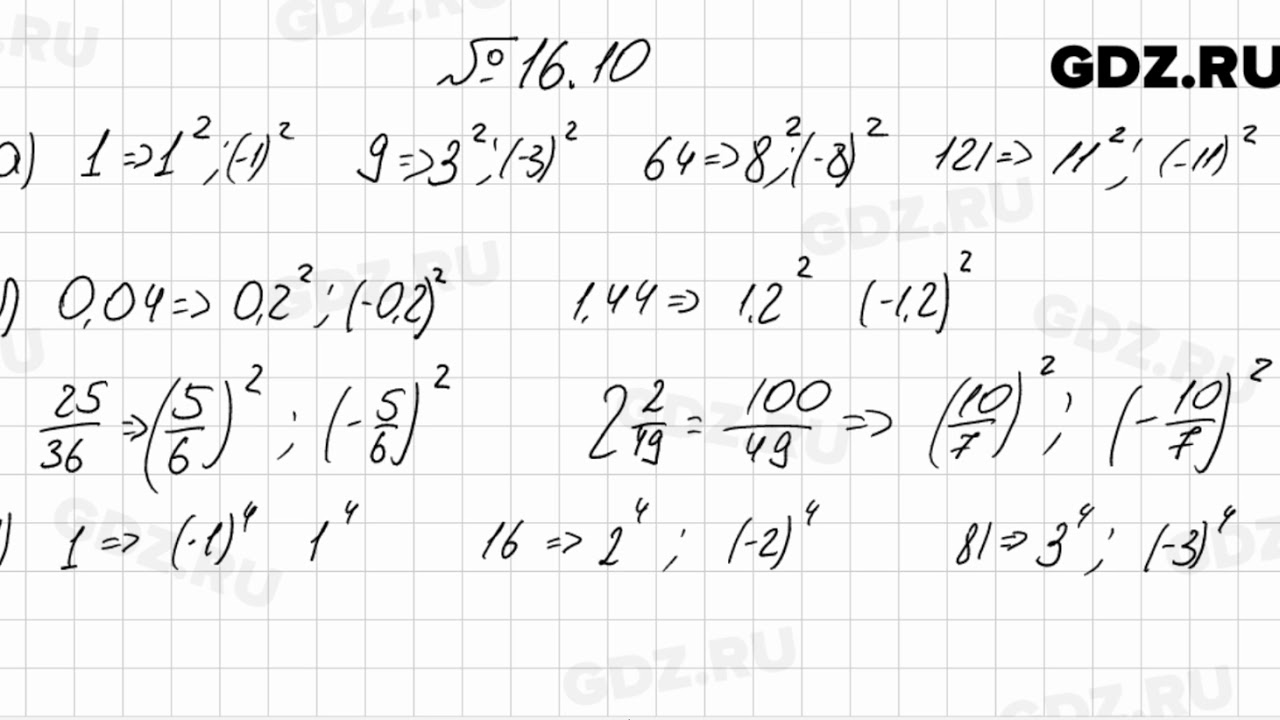 № 16.10
GDZ.RU
а) 1 => 1²; (-1)² 9 => 3²; (-3)² 64 => 8²; (-8)² 121 => 11²; (-11)²
) 0,04 => 0,2²; (-0,2)² 1,44 => 1,2² (-1,2)²
25/36 => (5/6)²; (-5/6)² 2 2/49 = 100/49 => (10/7)²; (-10/7)²
) 1 => (-1)⁴ 1⁴ 16 => 2⁴; (-2)⁴ 81 => 3⁴; (-3)⁴